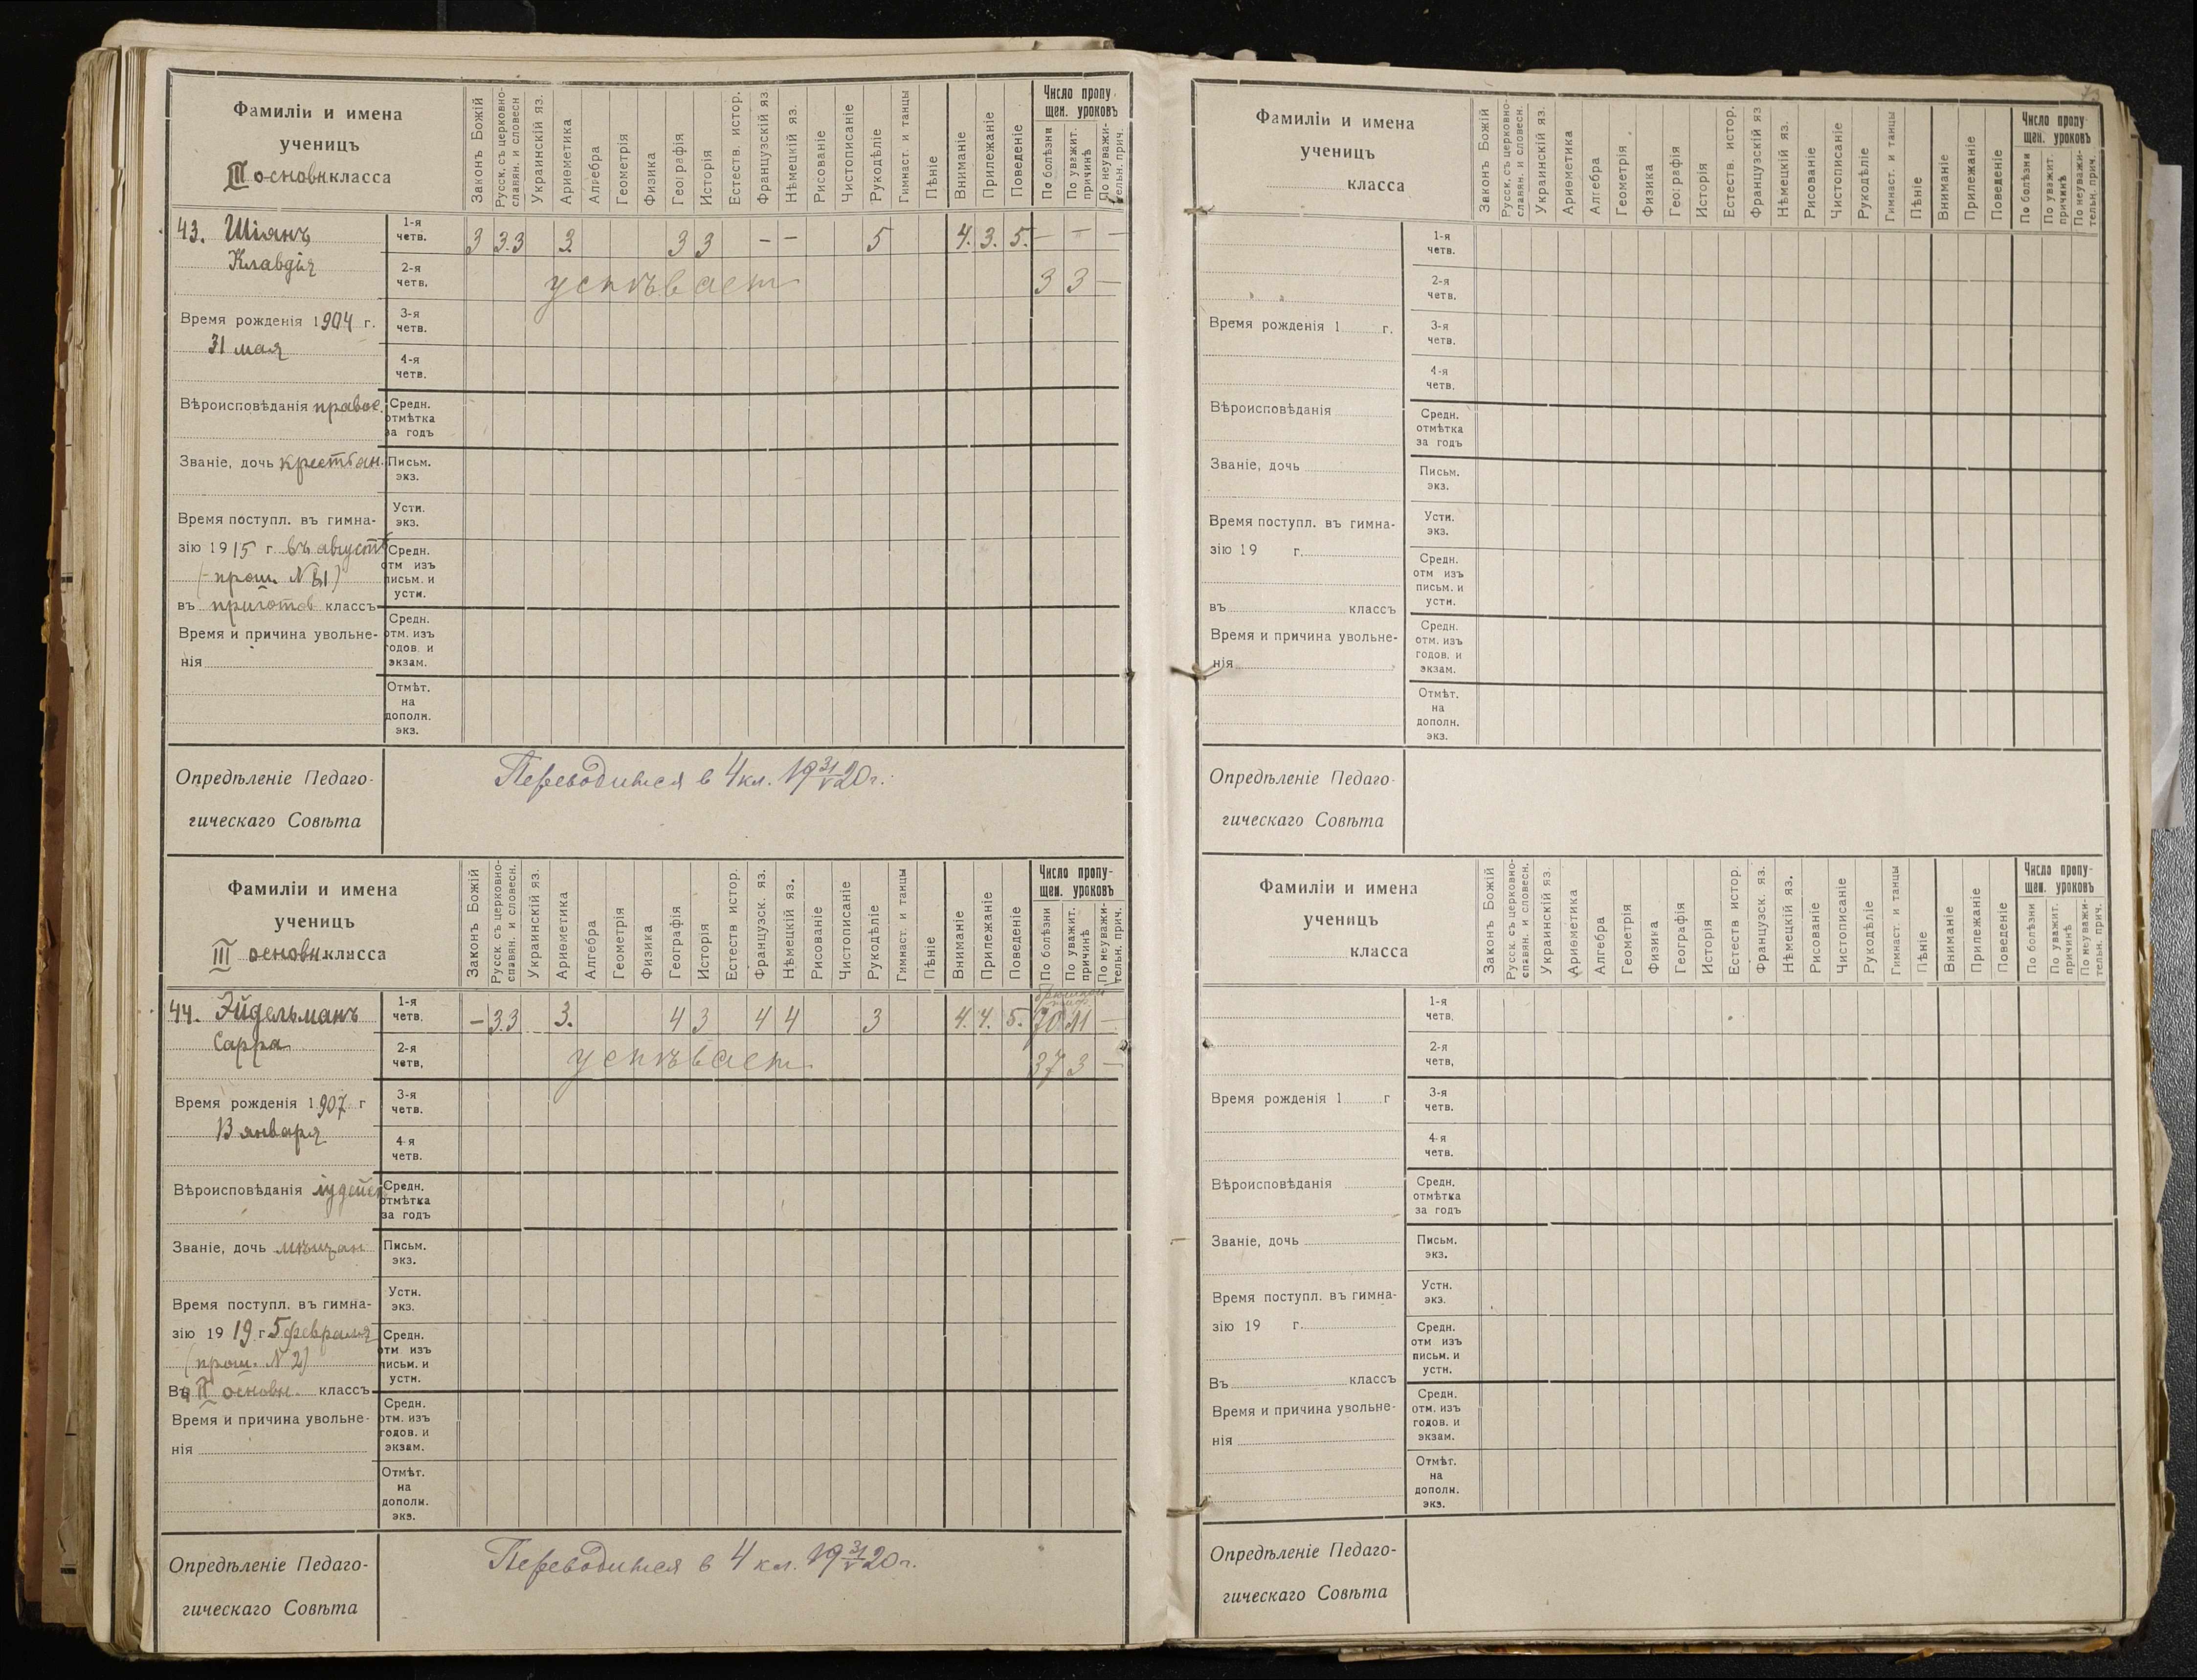 Фамиліи и имена
ученицъ
III основн. класса
Законъ Божій
Русск. съ церковно-
славян. и словесн
Украинскій яз.
Ариѳметика
Алгебра
Геометрія
Физика
Географія
Исторія
Естеств. истор.
Французскій яз
Нѣмецкій яз.
Рисованіе
Чистописаніе
Рукодѣліе
Гимнаст. и танцы
Пѣніе
Вниманіе
Прилежаніе
Поведеніе
Число пропу
щен. уроковъ
По болѣзни
По уважит.
причинѣ
По неуважи-
тельн. прич.
43. Шіянъ
Клавдія
1-я
четв.
3 3.3 3 3 3 – – 5 4. 3. 5. – – –
2-я
четв.
успѣвает 3 3 –
Время рожденія 1904 г.
31 мая
3-я
четв.
4-я
четв.
Вѣроисповѣданія правос.
Средн.
отмѣтка
за годъ
Званіе, дочь крестьян.
Письм.
экз.
Время поступл. въ гимна-
зію 1915 г. въ августѣ
(прош. N 81)
въ приготов классъ
Устн.
экз.
Средн.
отм изъ
письм. и
устн.
Время и причина увольне-
нія
Средн.
отм. изъ
годов. и
экзам.
Отмѣт.
на
дополн.
экз.
Опредѣленіе Педаго-
гическаго Совѣта
Переводится в 4 кл. 19 31/V 20 г.
Фамиліи и имена
ученицъ
III основн. класса
Законъ Божій
Русск. съ церковно-
славян. и словесн.
Украинскій яз.
Ариѳметика
Алгебра
Геометрія
Физика
Географія
Исторія
Естеств истор.
Французск. яз.
Нѣмецкій яз.
Рисованіе
Чистописаніе
Рукодѣліе
Гимнаст. и танцы
Пѣніе
Вниманіе
Прилежаніе
Поведеніе
Число пропу-
щен. уроковъ
По болѣзни
По уважит.
причинѣ
По неуважи-
тельн. прич.
44. Эйдельманъ
Сарра
1-я
четв.
– 3.3 3. 4 3 4 4 3 4. 4. 5. 70 11 –
2-я
четв,
успѣвает 37 3 –
Время рожденія 1907 г
13 января
3-я
четв.
4-я
четв.
Вѣроисповѣданія іудейск
Средн.
отмѣтка
за годъ
Званіе, дочь мѣщан
Письм.
экз.
Время поступл. въ гимна-
зію 1919 г 5 февраля
(прош. N 2)
Въ II основн. классъ
Устн.
экз.
Средн.
отм изъ
письм. и
устн.
Время и причина увольне-
нія
Средн.
отм. изъ
годов. и
экзам.
Отмѣт.
на
дополн.
экз.
Опредѣленіе Педаго-
гическаго Совѣта
Переводится в 4 кл. 19 31/V 20 г.
Фамиліи и имена
ученицъ
класса
Законъ Божій
Русск. съ церковно-
славян. и словесн.
Украинскій яз.
Ариѳметика
Алгебра
Геометрія
Физика
Географія
Исторія
Естеств. истор.
Французскій яз
Нѣмецкій яз.
Рисованіе
Чистописаніе
Рукодѣліе
Гимнаст. и танцы
Пѣніе
Вниманіе
Прилежаніе
Поведеніе
Число пропу
щен. уроковъ
По болѣзни
По уважит.
причинѣ
По неуважи-
тельн. прич.
1-я
четв.
2-я
четв.
Время рожденія 1 г.
3-я
четв.
4-я
четв.
Вѣроисповѣданія
Средн.
отмѣтка
за годъ
Званіе, дочь
Письм.
экз.
Время поступл. въ гимна-
зію 19 г.
въ классъ
Устн.
экз.
Средн.
отм изъ
письм. и
устн.
Время и причина увольне-
нія
Средн.
отм. изъ
годов. и
экзам.
Отмѣт.
на
дополн.
экз.
Опредѣленіе Педаго-
гическаго Совѣта
Фамиліи и имена
ученицъ
класса
Законъ Божій
Русск. съ церковно-
славян. и словесн.
Украинскій яз.
Ариѳметика
Алгебра
Геометрія
Физика
Географія
Исторія
Естеств истор.
Французск. яз.
Нѣмецкій яз.
Рисованіе
Чистописаніе
Рукодѣліе
Гимнаст. и танцы
Пѣніе
Вниманіе
Прилежаніе
Поведеніе
Число пропу-
щен. уроковъ
По болѣзни
По уважит.
причинѣ
По неуважи-
тельн. прич.
1-я
четв.
2-я
четв,
Время рожденія 1 г
3-я
четв.
4-я
четв.
Вѣроисповѣданія
Средн.
отмѣтка
за годъ
Званіе, дочь
Письм.
экз.
Время поступл. въ гимна-
зію 19 г.
Въ классъ
Устн.
экз.
Средн.
отм изъ
письм. и
устн.
Время и причина увольне-
нія
Средн.
отм. изъ
годов. и
экзам.
Отмѣт.
на
дополн.
экз.
Опредѣленіе Педаго-
гическаго Совѣта